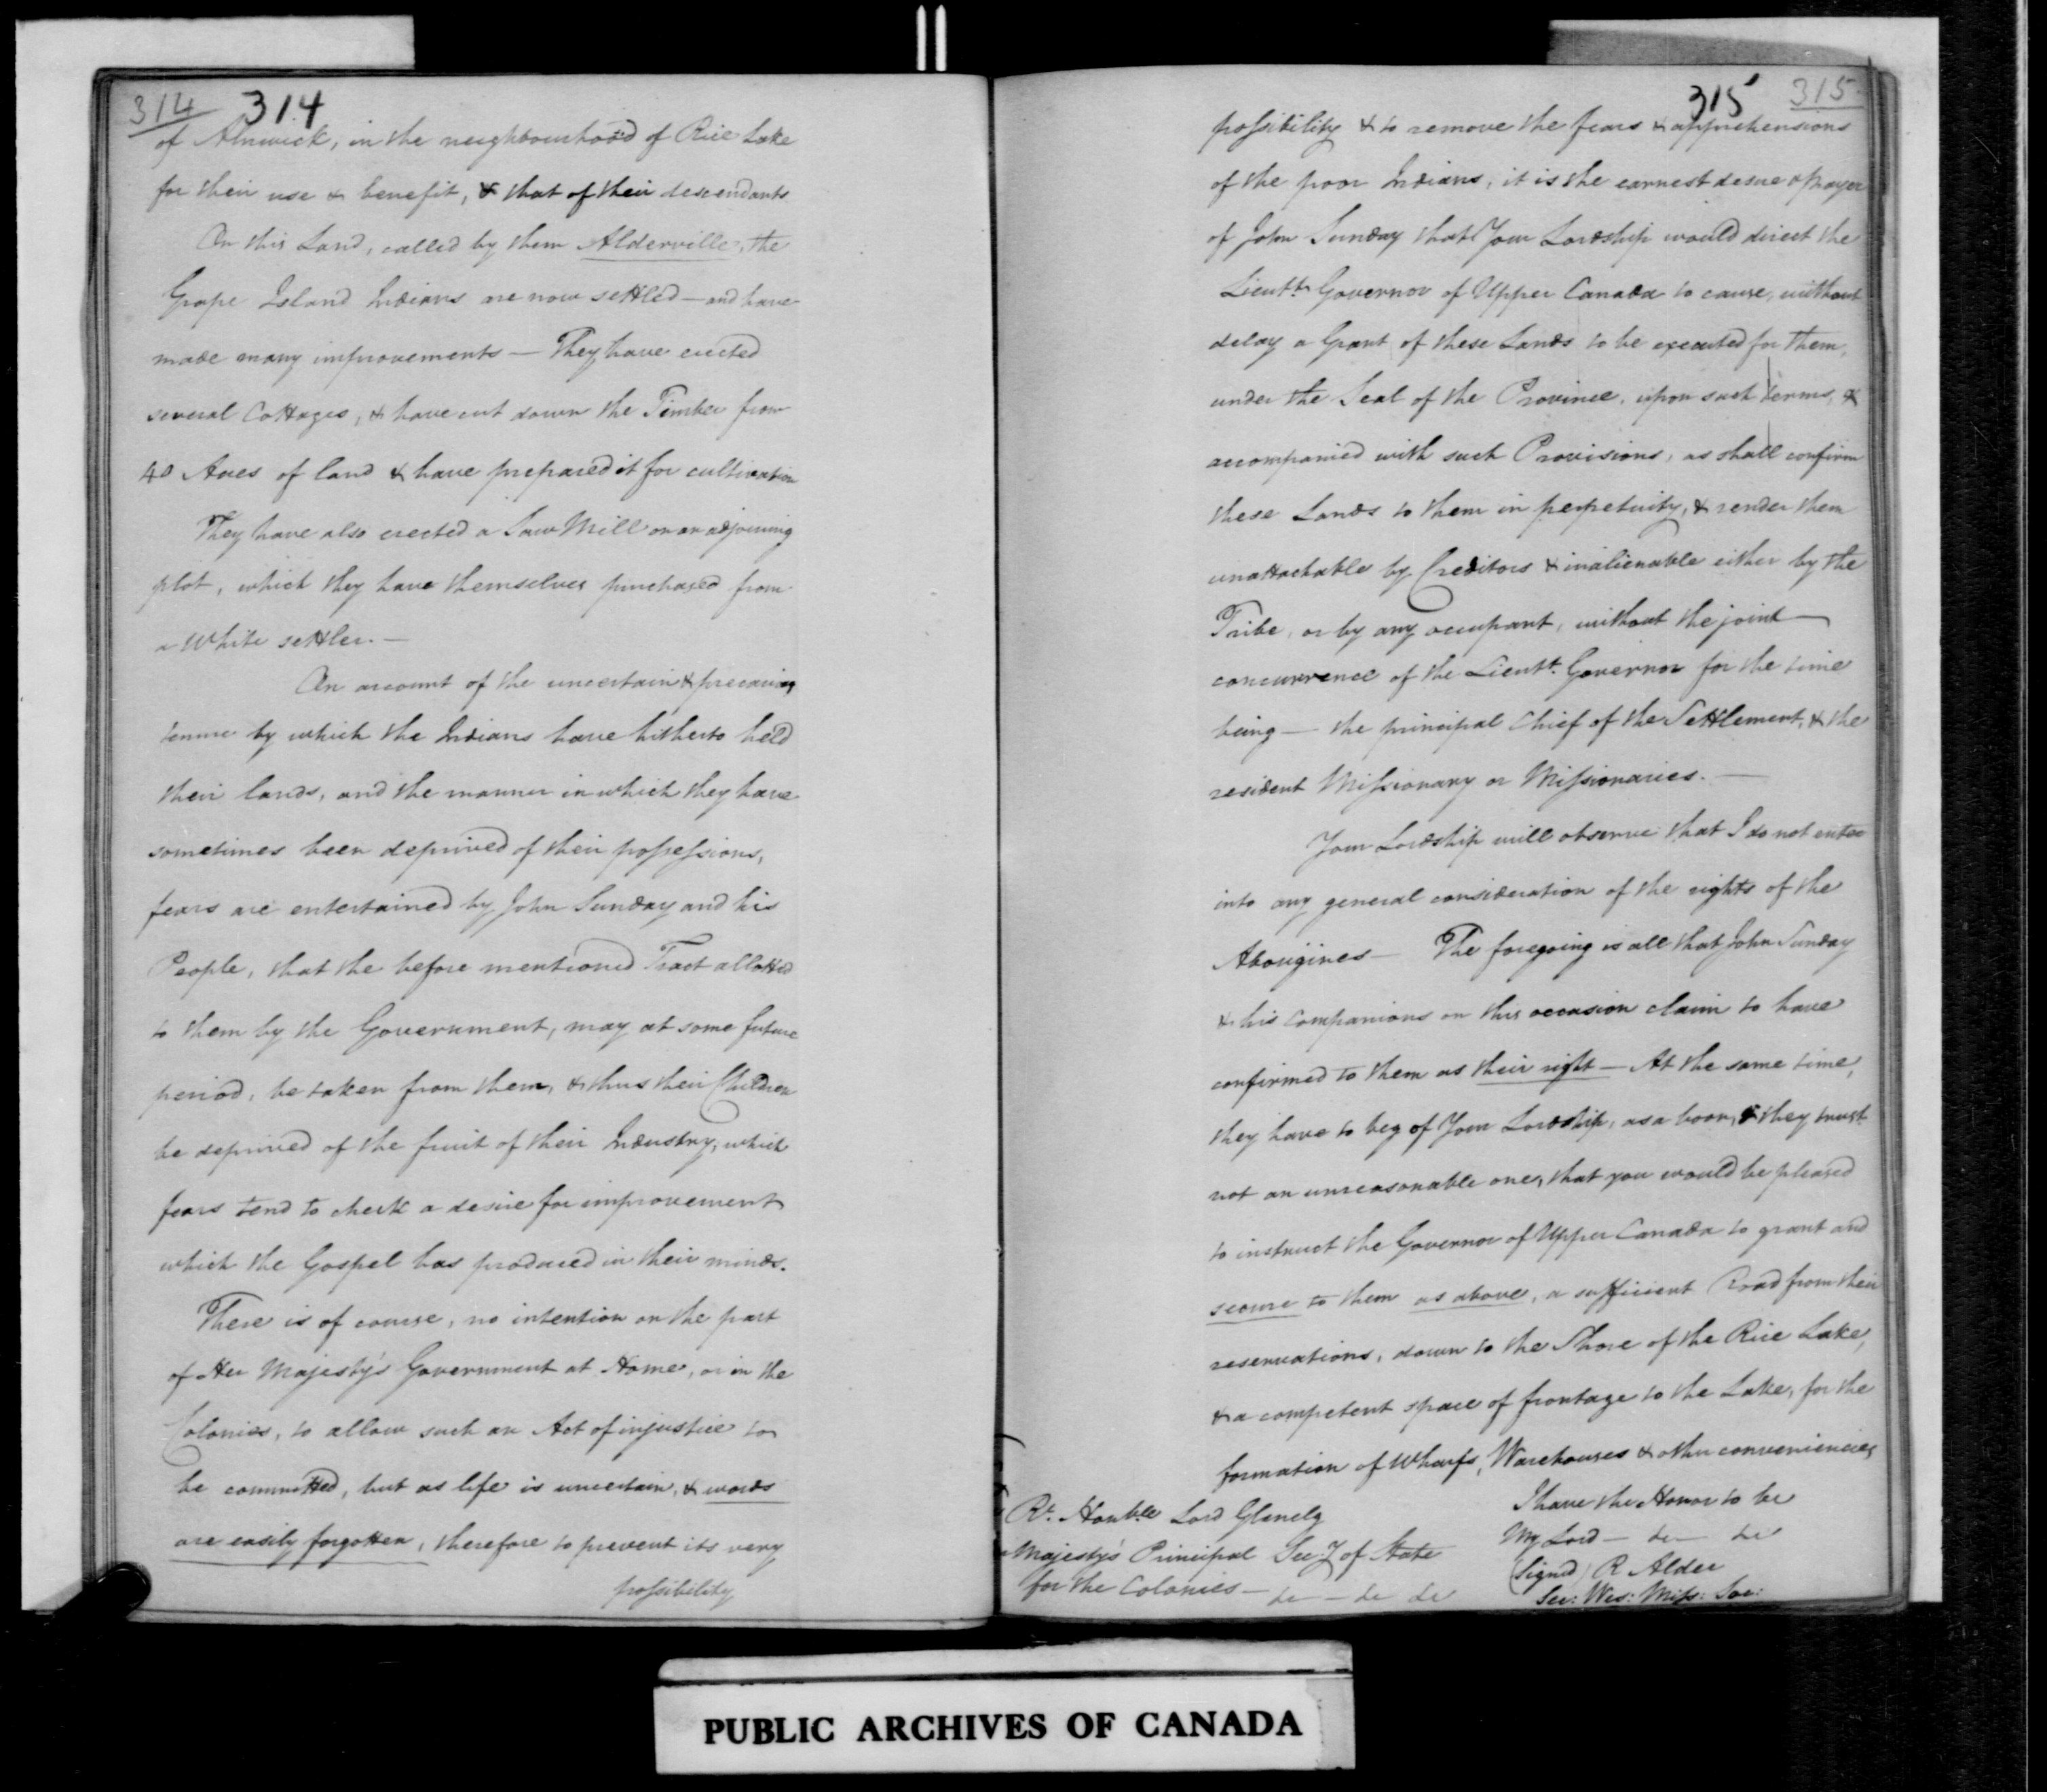 314 314
of Alnwick, in the neighbourhood of Rice Lake
for their use & benefit, & that of their descendants
On this Land, called by them Alderville, the
Grape Island Indians are now settled — and have
made many improvements — They have erected
several Cottages, & have cut down the Timber from
40 Acres of land & have prepared it for cultivation
They have also erected a Saw Mill on an adjoining
plot, which they have themselves purchased from
a White settler. —
On account of the uncertain & precarious
tenure by which the Indians have hitherto held
their lands, and the manner in which they have
sometimes been deprived of their possessions,
fears are entertained by John Sunday and his
People, that the before mentioned Tract allotted
to them by the Government, may at some future
period, be taken from them, & thus their Children
be deprived of the fruit of their Industry, which
fears tend to check a desire for improvement
which the Gospel has produced in their minds.
There is of course, no intention on the part
of Her Majesty's Government at Home, or in the
Colonies, to allow such an Act of injustice to
be committed, but as life is uncertain, & words
are easily forgotten, therefore to prevent its very
possibility
315 315
possibility & to remove the fears & apprehensions
of the poor Indians, it is the earnest desire & prayer
of John Sunday that Your Lordship would direct the
Lieutt. Governor of Upper Canada to cause, without
delay a Grant of these Lands to be executed for them,
under the Seal of the Province, upon such terms, &
accompanied with such Provisions, as shall confirm
these Lands to them in perpetuity, & render them
unattachable by Creditors & inalienable either by the
Tribe, or by any occupant, without the joint —
concurrence of the Lieutt. Governor for the time
being — the principal Chief of the Settlement, & the
resident Missionary or Missionaries. —
Your Lordship will observe that I do not enter
into any general consideration of the rights of the
Aborigines — The foregoing is all that John Sunday
& his Companions on this occasion claim to have
confirmed to them as their right — At the same time,
they have to beg of Your Lordship, as a boon, & they trust
not an unreasonable one, that you would be pleased
to instruct the Governor of Upper Canada to grant and
secure to them as above, a sufficient Road from their
reservations, down to the Shore of the Rice Lake,
& a competent space of frontage to the Lake, for the
formation of Wharfs, Warehouses & other conveniencies
I have the Honor to be
My Lord — &c — &c
(Signd) R Alder
Sec: Wes: Miss: Soc:
Rt. Honble Lord Glenelg
Majesty's Principal Secy of State
for the Colonies — &c — &c &c
PUBLIC ARCHIVES OF CANADA